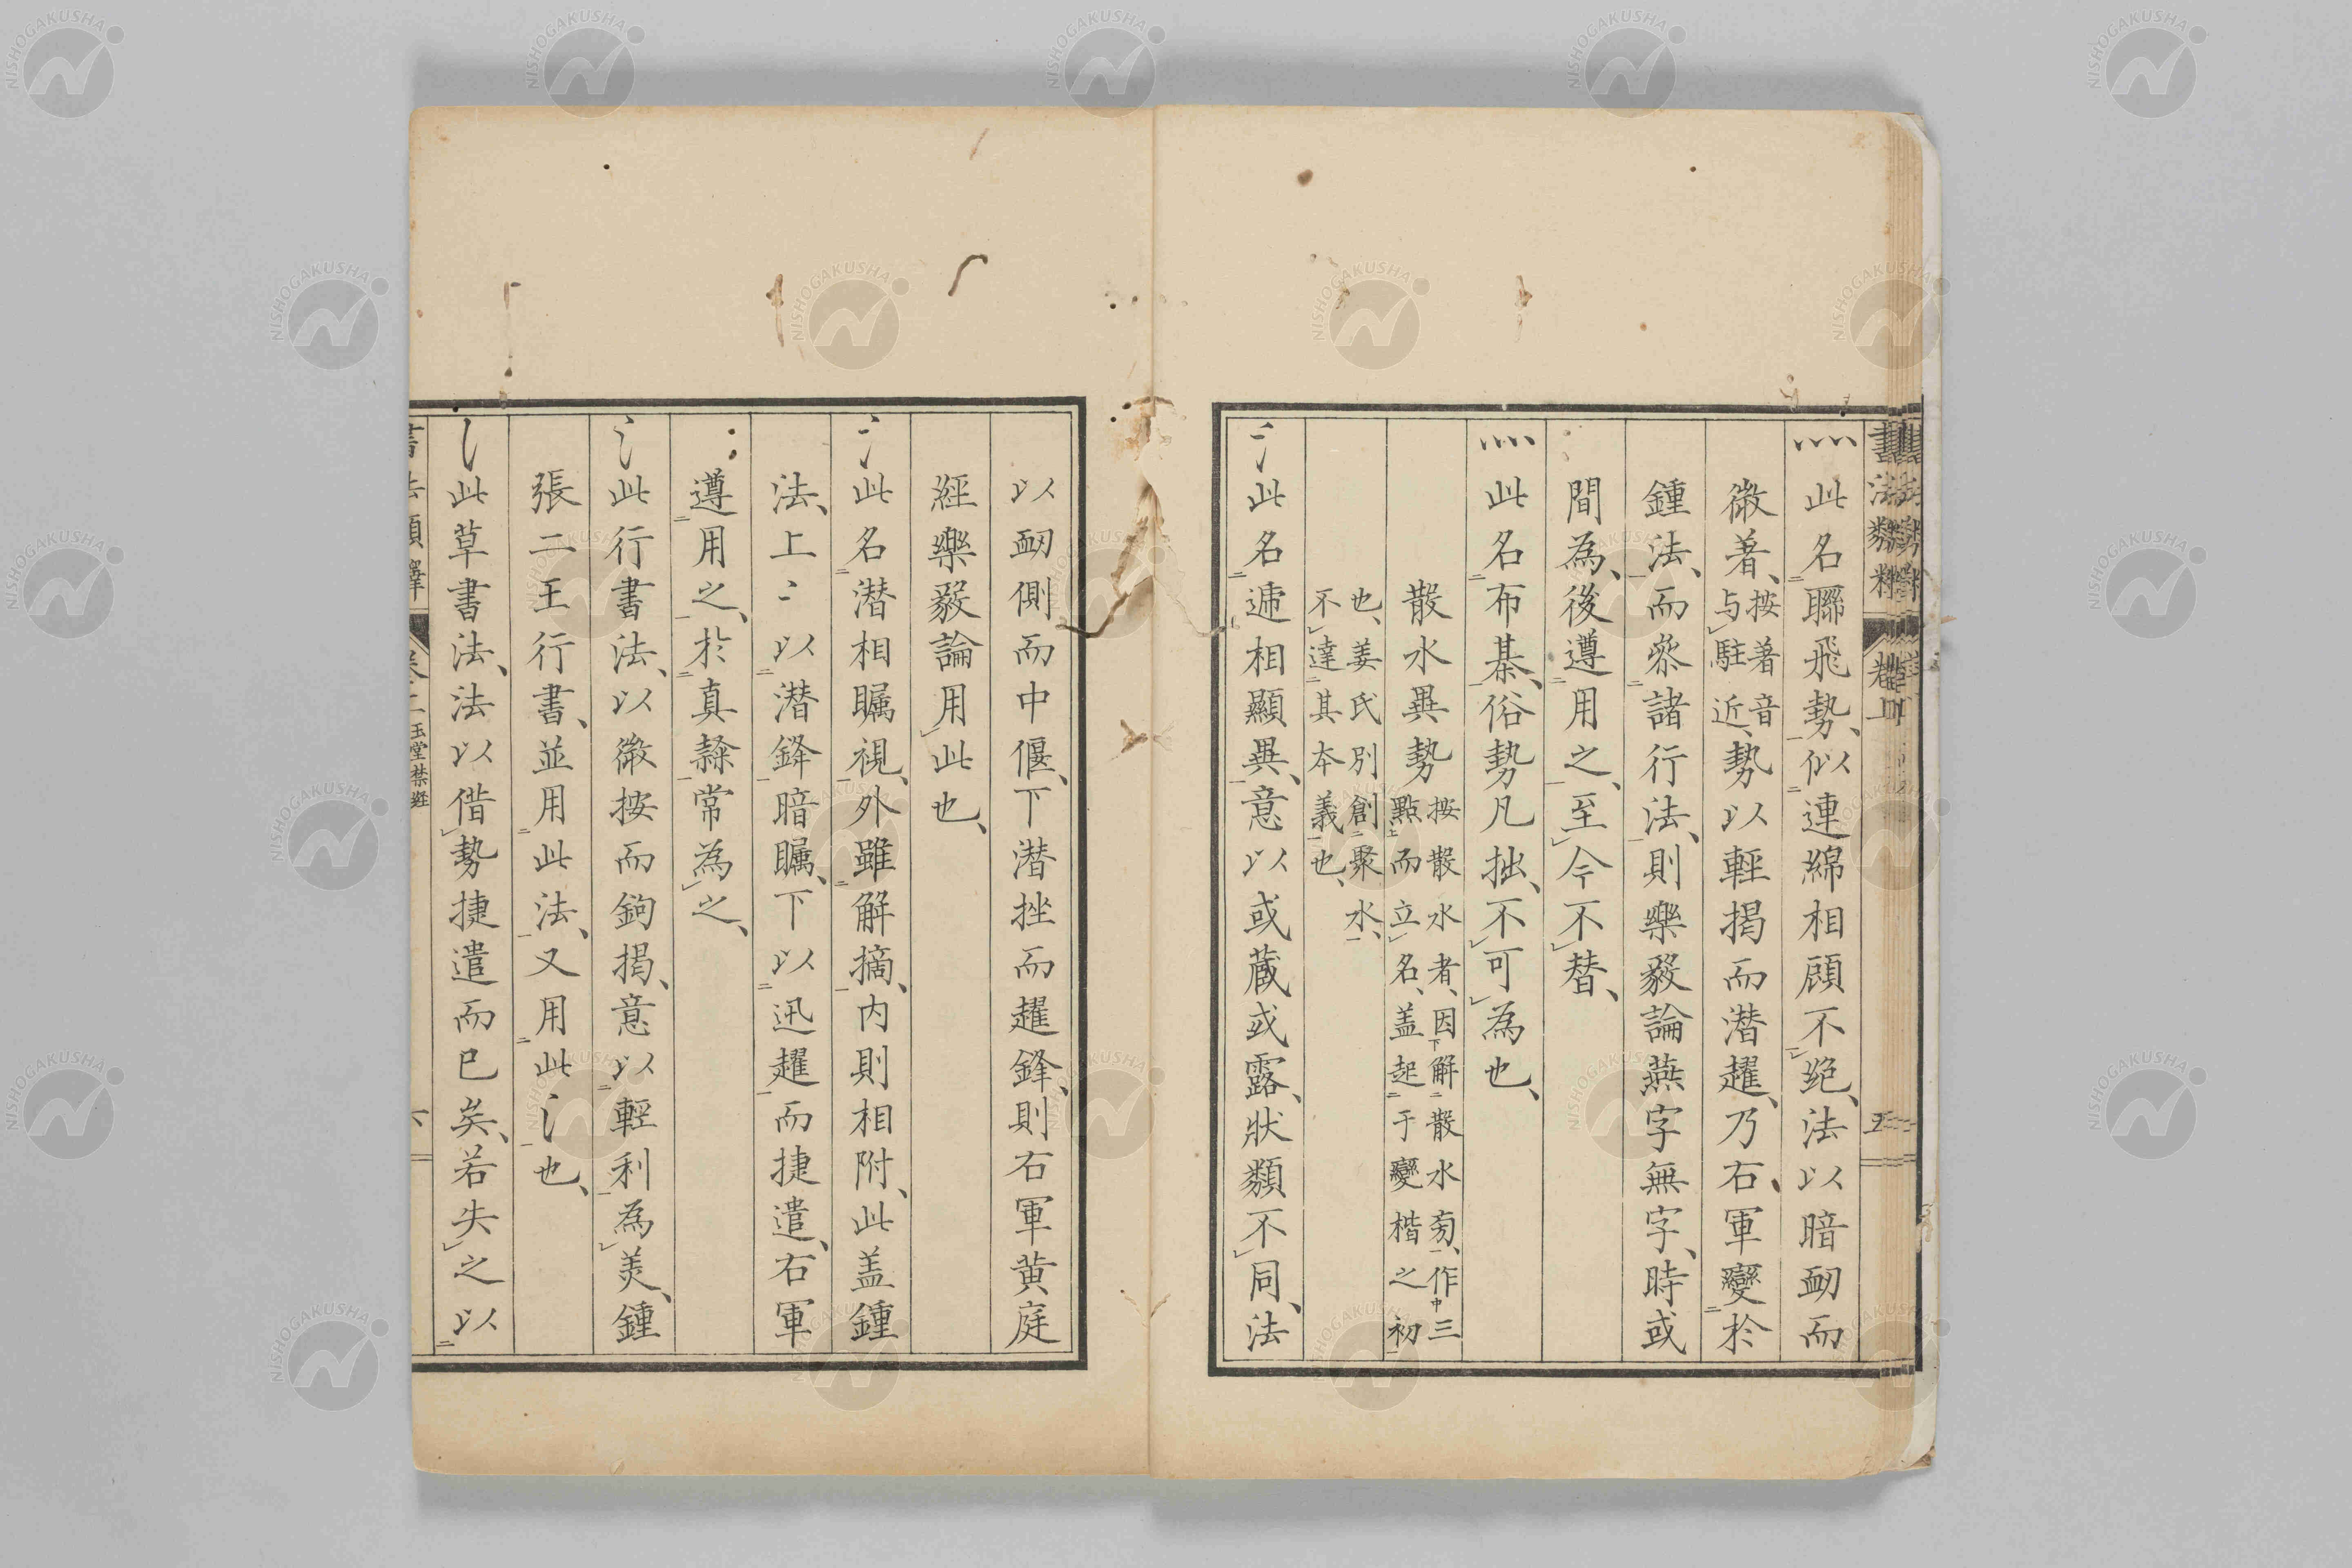 灬此名聯飛勢、似連綿相顧不絕、法以暗衂而
微著、按著音与駐近、勢以輕揭而潛趯、乃右軍變於
鍾法、而參諸行法、則樂毅論燕字無字、時或
間為、後遵用之、至今不替、
灬此名布棊、俗勢凡拙、不可為也、
散水異勢按散水者、因解散水㫄、作三
點而立名、盖起于變楷之初
也、姜氏別創聚水、
不達其本義也、
冫此名遞相顯異、意以或蔵或露、狀類不同、法
以衂側而中偃、下潛挫而趯鋒、則右軍黄庭
經樂毅論用此也、
冫此名潛相矚視、外雖解摘、内則相附、此盖鍾
法、上以潛鋒暗矚、下以迅趯而捷遣、右軍
遵用之、於真隸常為之、
氵此行書法、以微按而鉤揭、意以輕利為美、鍾
張二王行書、並用此法、又用此讠也、
讠此草書法、法以借勢捷遣而已矣、若失之以
書法類釋 卷 二 玉堂禁經 六
五
NISHOGAKUSHA